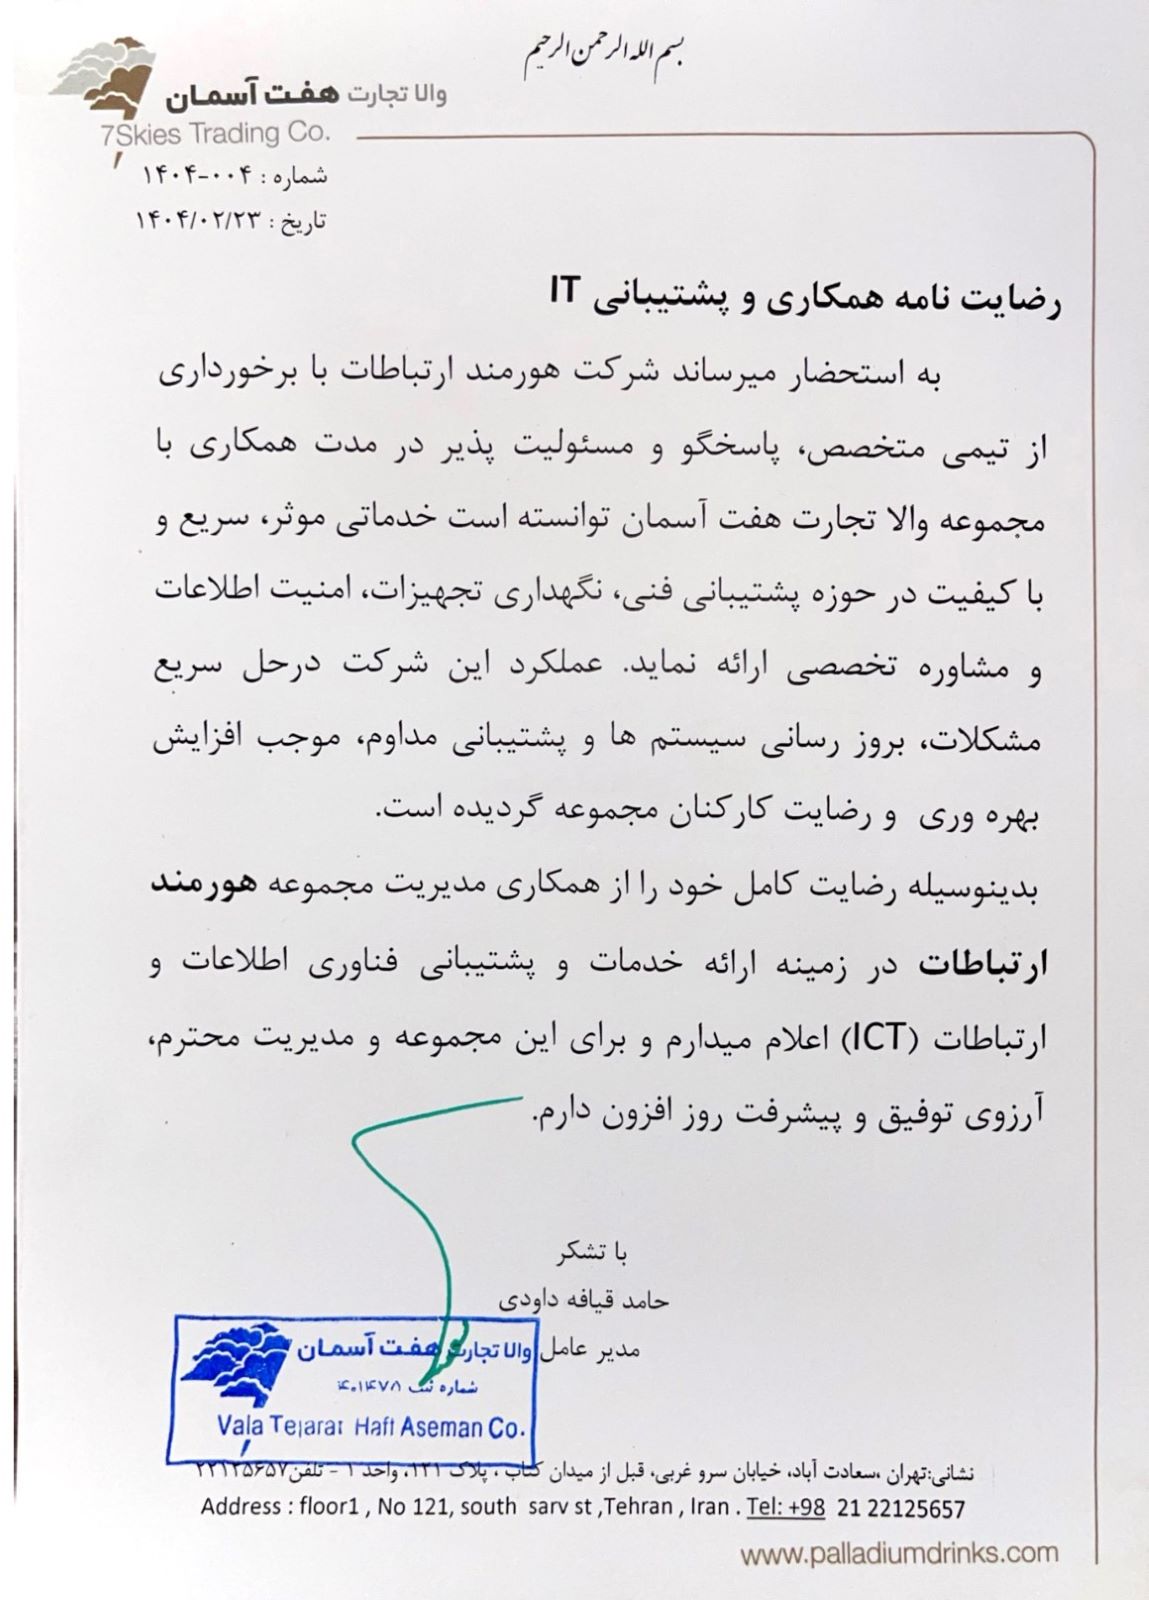 بسم الله الرحمن الرحیم
والا تجارت هفت آسمان
7Skies Trading Co.
شماره : ۰۰۴-۱۴۰۴
تاریخ : ۱۴۰۴/۰۲/۲۳
رضایت نامه همکاری و پشتیبانی IT
به استحضار میرساند شرکت هورمند ارتباطات با برخورداری
از تیمی متخصص، پاسخگو و مسئولیت پذیر در مدت همکاری با
مجموعه والا تجارت هفت آسمان توانسته است خدماتی موثر، سریع و
با کیفیت در حوزه پشتیبانی فنی، نگهداری تجهیزات، امنیت اطلاعات
و مشاوره تخصصی ارائه نماید. عملکرد این شرکت درحل سریع
مشکلات، بروز رسانی سیستم ها و پشتیبانی مداوم، موجب افزایش
بهره وری و رضایت کارکنان مجموعه گردیده است.
بدینوسیله رضایت کامل خود را از همکاری مدیریت مجموعه هورمند
ارتباطات در زمینه ارائه خدمات و پشتیبانی فناوری اطلاعات و
ارتباطات (ICT) اعلام میدارم و برای این مجموعه و مدیریت محترم،
آرزوی توفیق و پیشرفت روز افزون دارم.
با تشکر
حامد قیافه داودی
مدیر عامل
والا تجارت هفت آسمان
شماره ثبت ۴۰۱۴۷۸
Vala Tejarat Haft Aseman Co.
نشانی:تهران ،سعادت آباد، خیابان سرو غربی، قبل از میدان کتاب ، پلاک ۱۲۱، واحد ۱ - تلفن۲۲۱۲۵۶۵۷
Address : floor1 , No 121, south sarv st ,Tehran , Iran . Tel: +98 21 22125657
www.palladiumdrinks.com